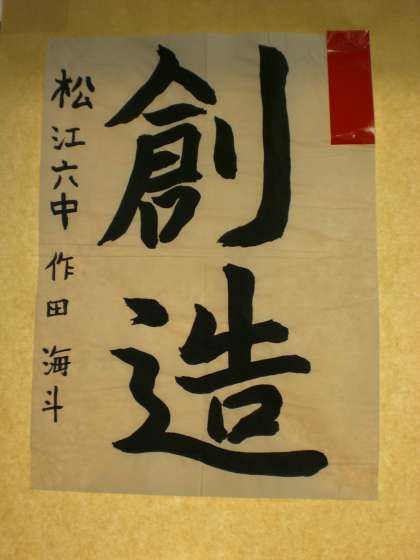 創造
松江六中 作田 海斗